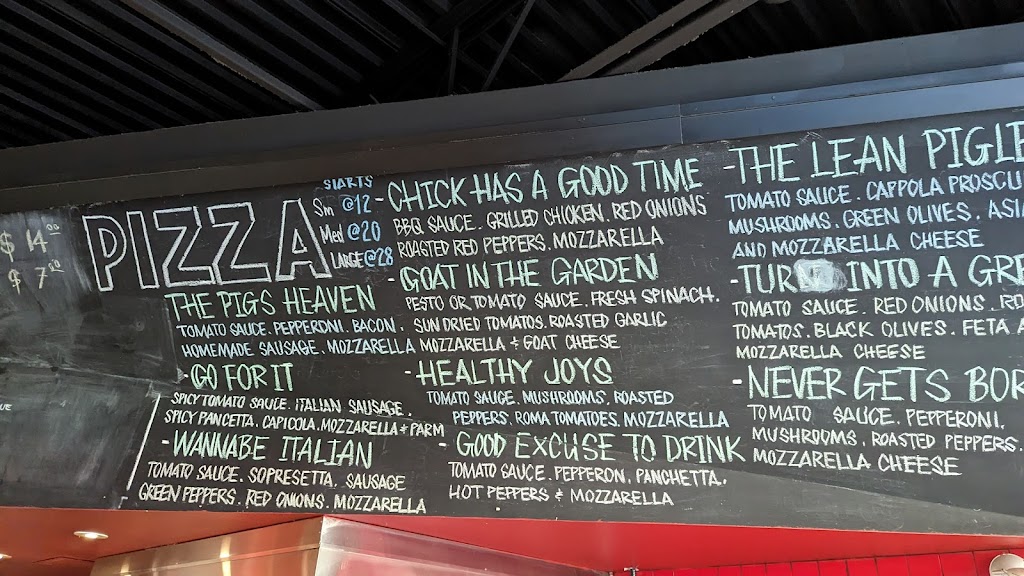 $ 14.00
$ 7.00
PIZZA
STARTS
Sm @12
Med @20
LARGE @28
THE PIGS HEAVEN
TOMATO SAUCE. PEPPERONI. BACON.
HOMEMADE SAUSAGE. MOZZARELLA
- GO FOR IT
SPICY TOMATO SAUCE. ITALIAN SAUSAGE.
SPICY PANCETTA. CAPICOLA. MOZZARELLA & PARM
- WANNABE ITALIAN
TOMATO SAUCE. SOPRESETTA. SAUSAGE
GREEN PEPPERS. RED ONIONS. MOZZARELLA
- CHICK HAS A GOOD TIME
BBQ SAUCE. GRILLED CHICKEN. RED ONIONS
ROASTED RED PEPPERS. MOZZARELLA
- GOAT IN THE GARDEN
PESTO OR TOMATO SAUCE. FRESH SPINACH.
SUN DRIED TOMATOS. ROASTED GARLIC
MOZZARELLA & GOAT CHEESE
- HEALTHY JOYS
TOMATO SAUCE. MUSHROOMS. ROASTED
PEPPERS. ROMA TOMATOES. MOZZARELLA
- GOOD EXCUSE TO DRINK
TOMATO SAUCE. PEPPERON. PANCHETTA.
HOT PEPPERS & MOZZARELLA
- THE LEAN PIGLE
TOMATO SAUCE. CAPPOLA PROSCU
MUSHROOMS. GREEN OLIVES. ASIA
AND MOZZARELLA CHEESE
- TUR INTO A GRE
TOMATO SAUCE. RED ONIONS. RO
TOMATOS. BLACK OLIVES. FETA A
MOZZARELLA CHEESE
- NEVER GETS BOR
TOMATO SAUCE. PEPPERONI.
MUSHROOMS. ROASTED PEPPERS.
MOZZARELLA CHEESE